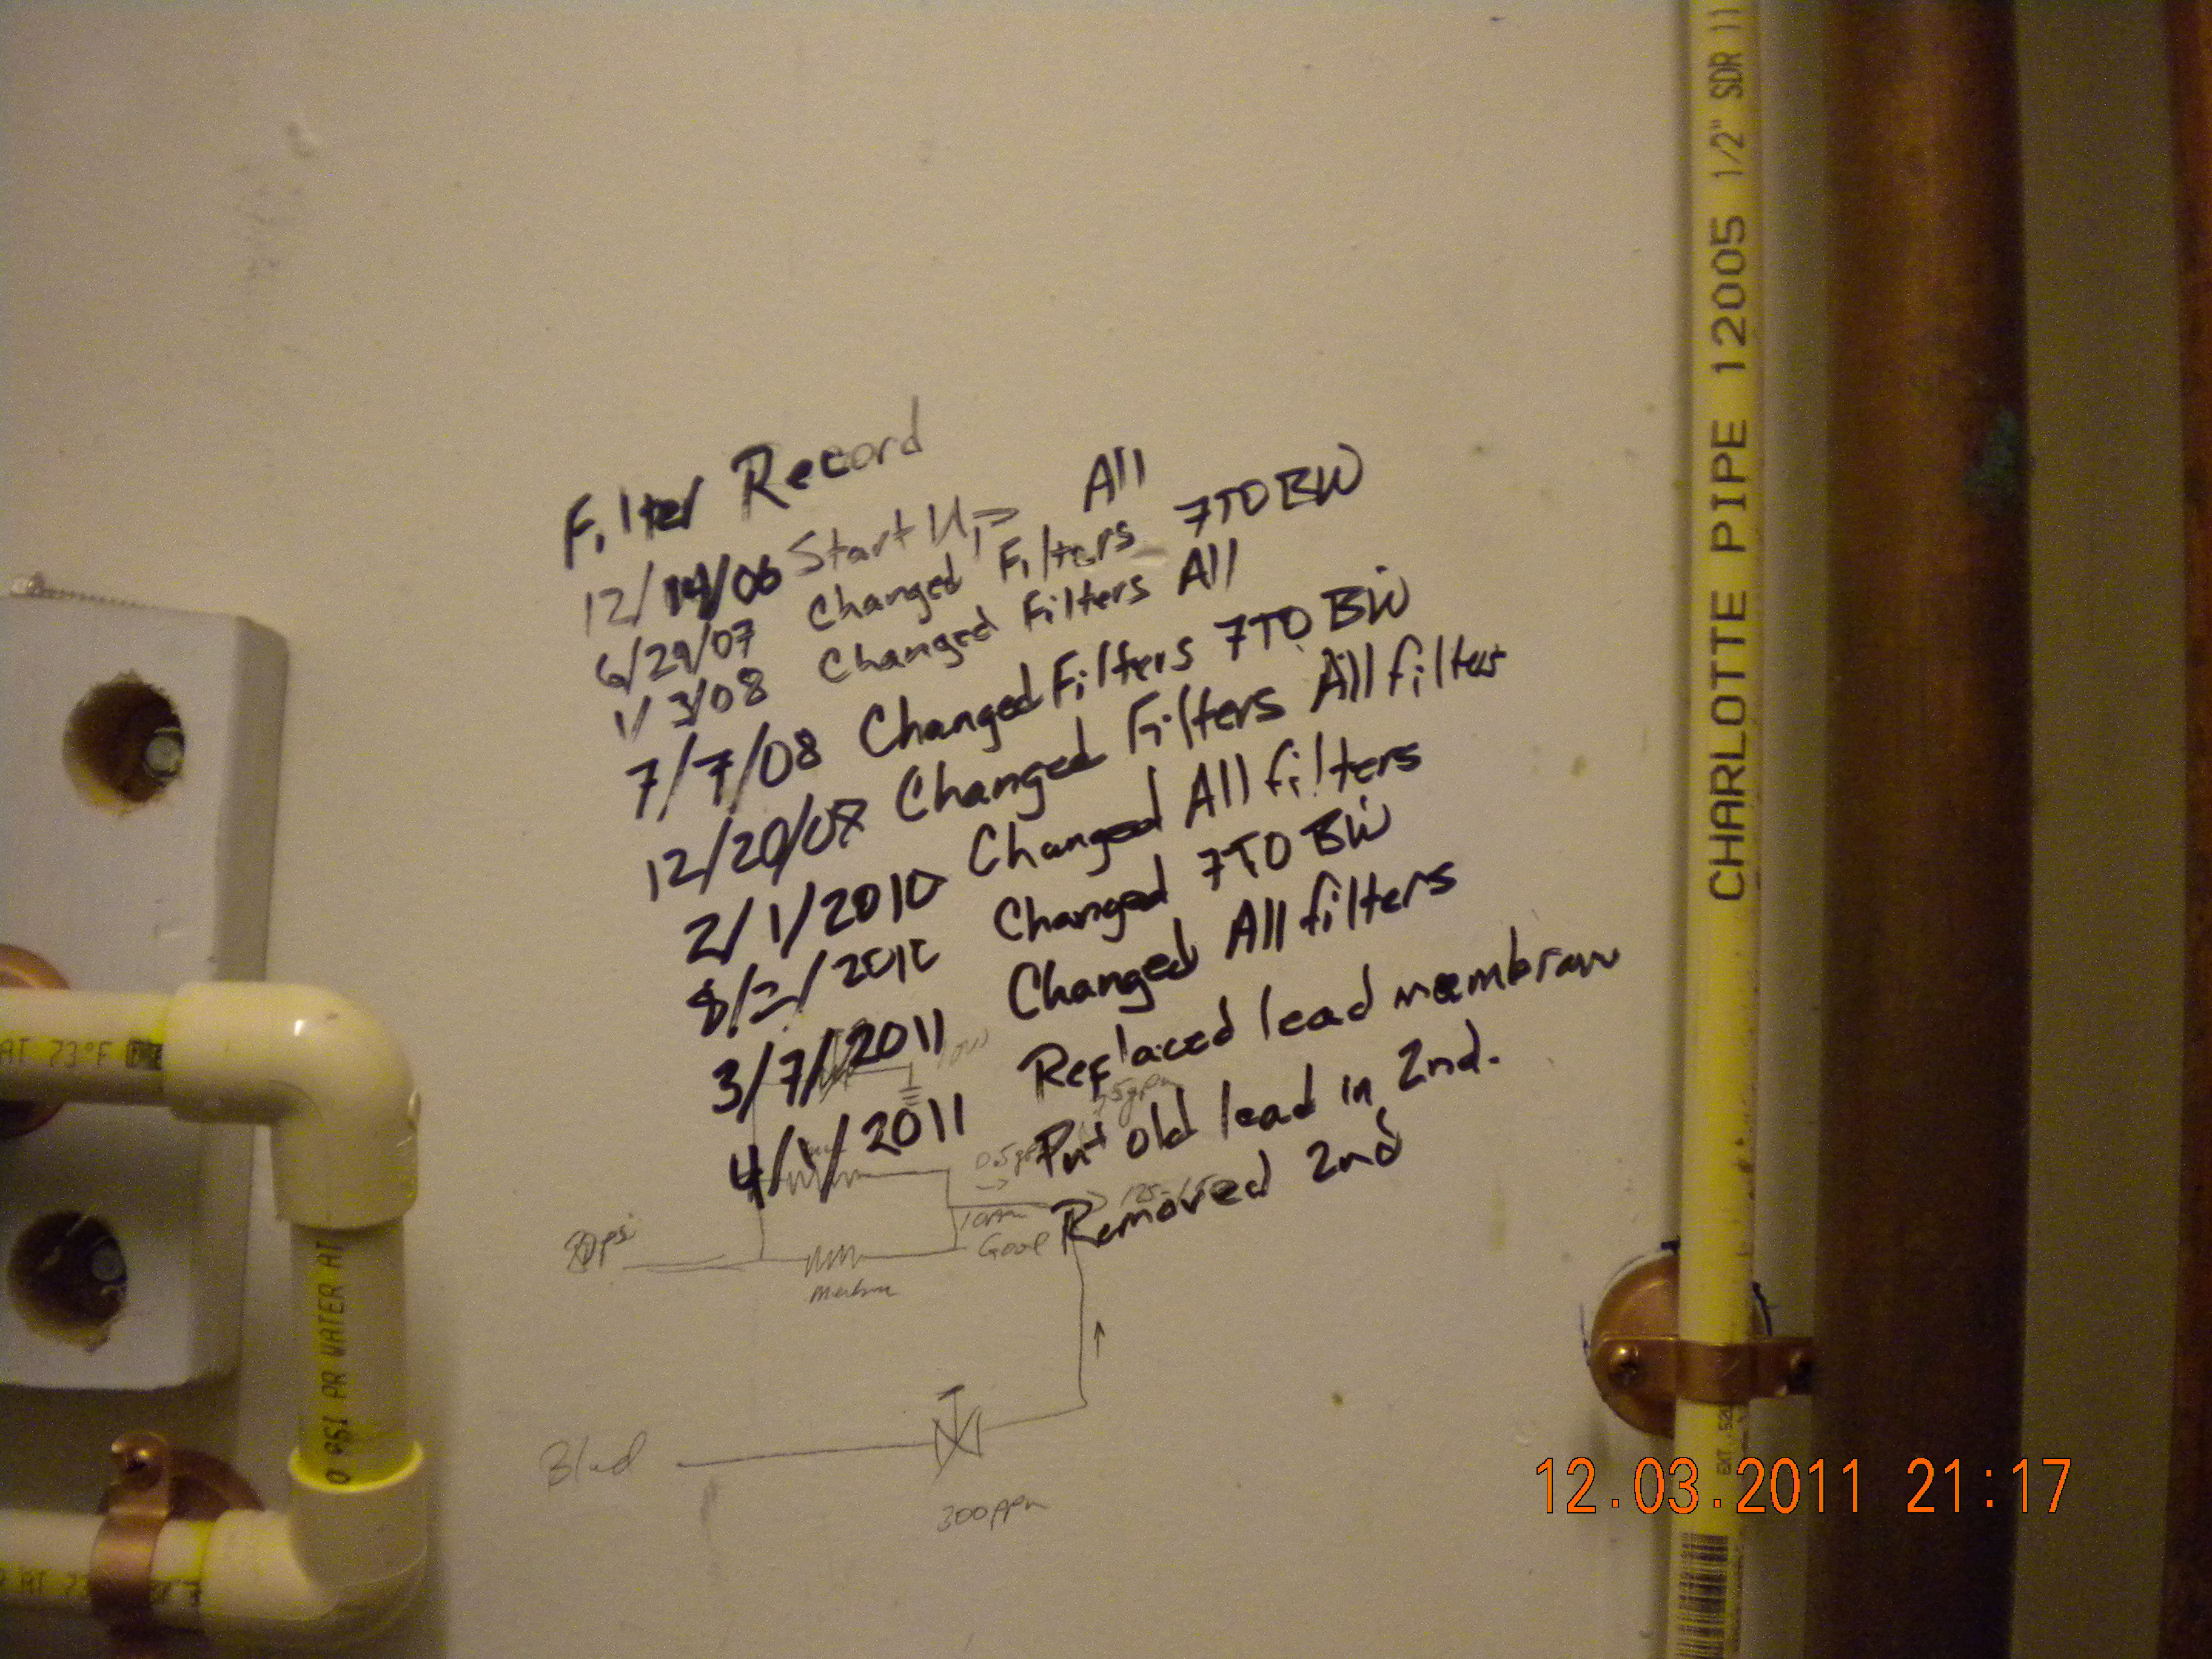 Filter Record
12/14/06 Start Up All
6/29/07 Changed Filters 7TO BW
1/3/08 Changed Filters All
7/7/08 Changed Filters 7TO BW
12/20/07 Changed Filters All filters
2/1/2010 Changed All filters
8/2/2010 Changed 7TO BW
3/7/2011 Changed All filters
4/1/2011 Replaced lead membran
Put old lead in 2nd.
Removed 2nd
10pm
Good
Blend
300ppm
CHARLOTTE PIPE 12005 1/2" SDR 11
AT 73°F
PSI PR WATER AT
12.03.2011 21:17